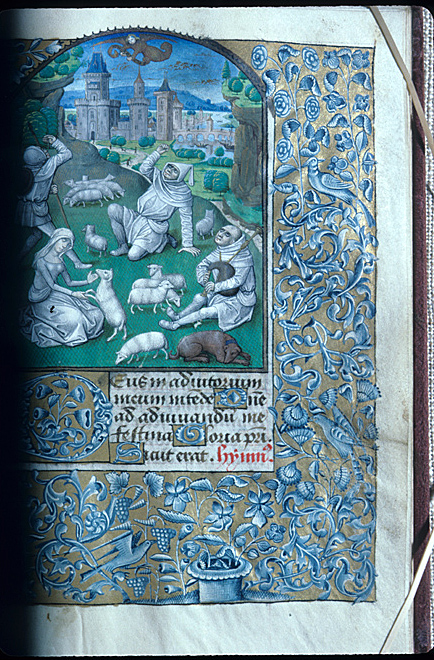 Eus in adiutorium
meum intede Dne
ad adiuuandū me
festina Gloria pri.
Sicut erat. hymn9.